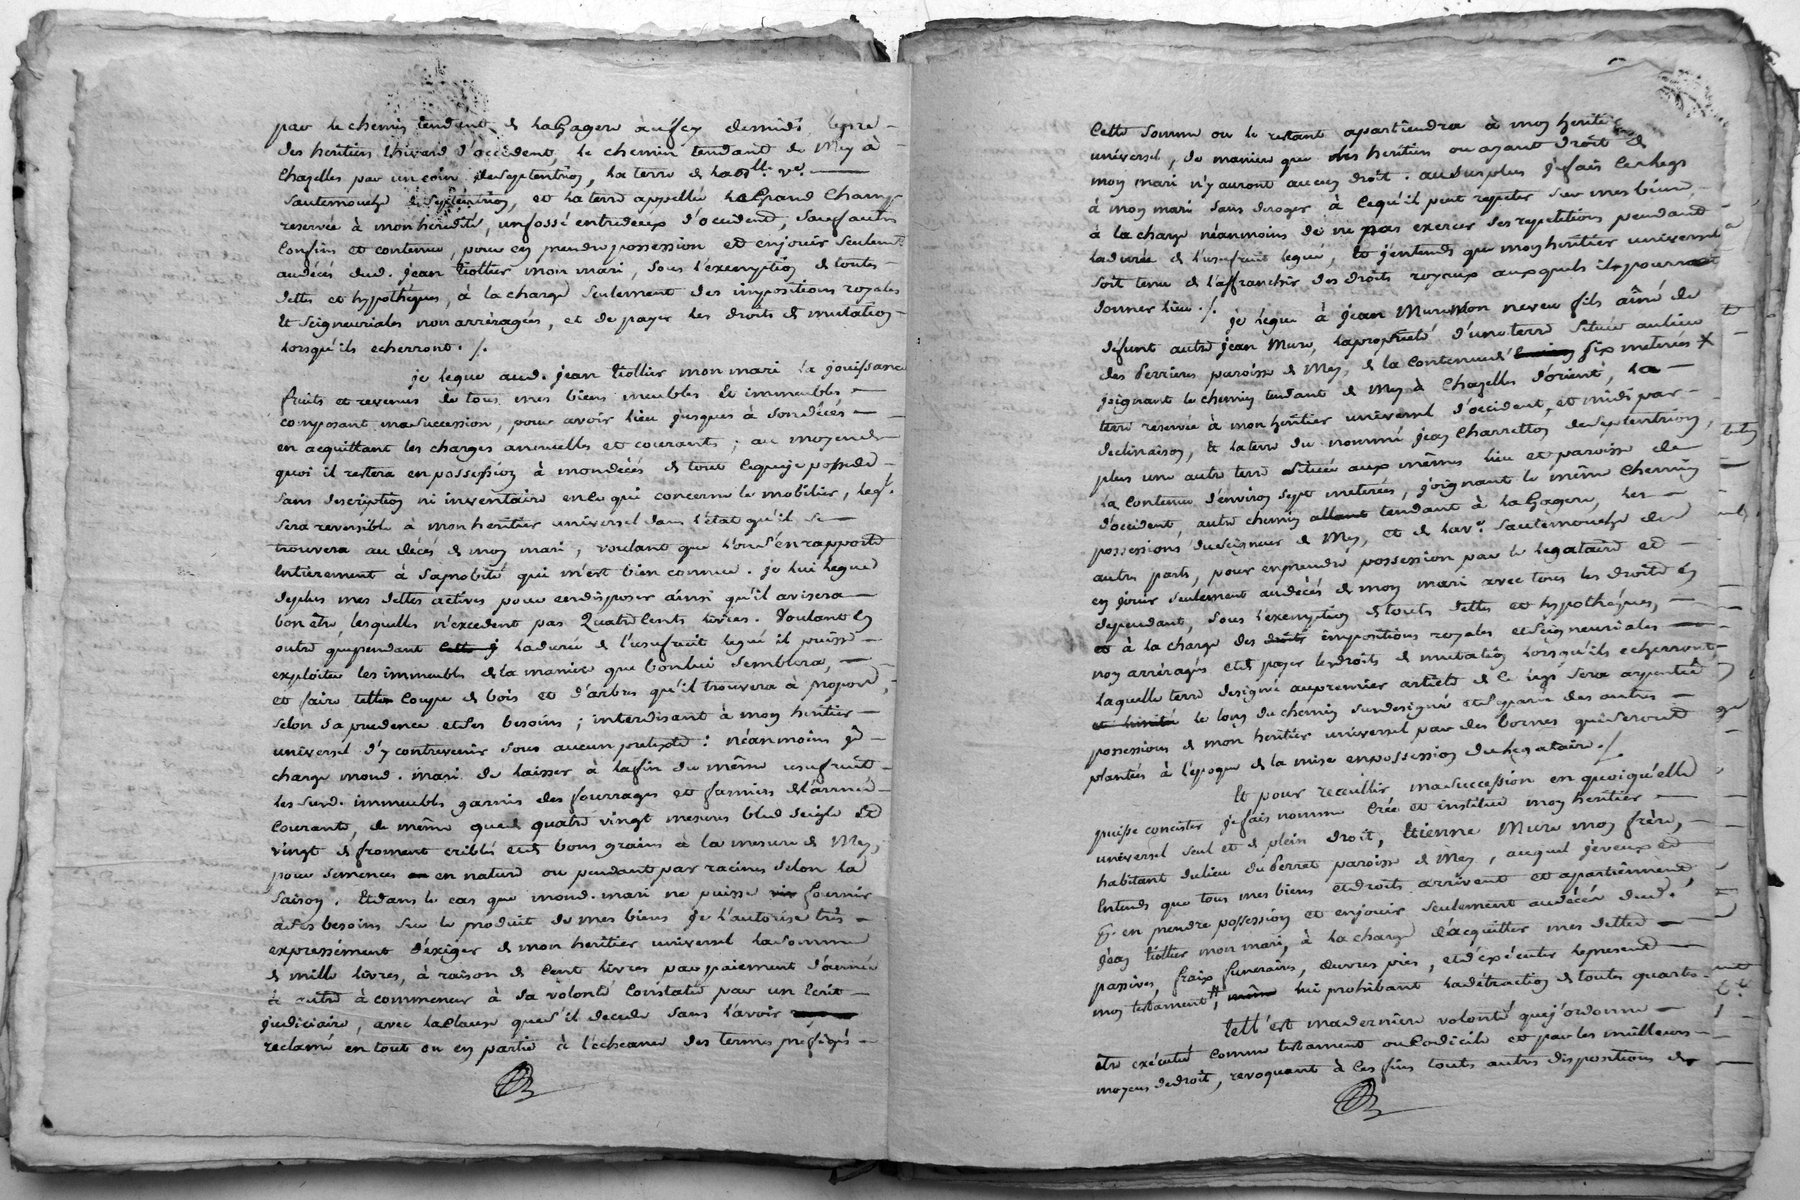 par le chemin tendant de la hagere aussey de midi, le pré
des heritiers thivard d'occident, le chemin tendant de Mey à
Chazelles par un coin de septentrion, la terre de la d.lle v.e
Sautemouche de septentrion, et la terre appellée le Grand Champ
reservée à mon hérédité, un fossé entredeux d'occident, sauf autres
Confins et contenue, pour en prendre possession et en jouir seulement
au décés dud. jean tiollier mon mari, sous l'exemption de toutes
dettes et hypothéques, à la charge seulement des impositions royales
et seigneuriales non arréragées, et de payer les droits de mutation
lorsqu'ils echerront. /.
je legue aud. jean tiollier mon mari la jouissance
fruits et revenus de tous mes biens meubles et immeubles
composant ma succession, pour avoir lieu jusques à son décés
en acquittant les charges annuelles et courantes ; au moyen de
quoi il restera en possession à mon décés de tout ce que je possede
sans description ni inventaire en ce qui concerne le mobilier, leq.l
sera reversible à mon heritier universel dans l'état qu'il se
trouvera au décés de mon mari, voulant que l'on s'en rapporte
entierement à sa probité qui m'est bien connue. je lui legue
de plus mes dettes actives pour en disposer ainsi qu'il avisera
bon être, lesquelles n'excedent pas quatre cents livres. Voulant en
outre que pendant la durée de l'usufruit legué il puisse
exploiter les immeubles de la maniere que bon lui semblera,
et faire telles coupe de bois et d'arbres qu'il trouvera à propos,
selon sa prudence et ses besoins ; interdisant à mon heritier
universel d'y contrevenir sous aucun pretexte : néanmoins je
charge mond. mari de laisser à la fin du même usufruit
les susd. immeubles garnis des fourrages et fumiers de l'année
courante, de même que de quatre vingt mesures bled seigle et
vingt de froment criblés et de bons grains à la mesure de Mey,
pour semences en nature ou pendant par racines selon la
saison. Et dans le cas que mond. mari ne puisse fournir
à ses besoins sur le produit de mes biens je l'autorise très
expressément d'exiger de mon heritier universel la somme
de mille livres, à raison de cent livres par paiement d'année
à autre à commencer à sa volonté constatée par un ecrit
judiciaire, avec la clause que s'il decede sans l'avoir
reclamé en tout ou en partie à l'echeance des termes prefigés
Cette somme ou le restant apartiendra à mon heritier
universel, de maniere que les heritiers ou ayant droit de
mon mari n'y auront aucun droit. au surplus je fais ce legs
à mon mari sans deroger à ce qu'il peut repeter sur mes biens
à la charge néanmoins de ne pas exercer ses repetitions pendant
la durée de l'usufruit legué, et j'entends que mon heritier universel
soit tenu de l'affranchir des droits royaux auxquels il pourroit
donner lieu. /.
je legue à jean Mure Mon neveu fils ainé de
défunt autre jean Mure, la propriété d'une terre située au lieu
des Perrieres paroisse de Mey, de la contenue d' six meterées X
joignant le chemin tendant de Mey à Chazelles d'orient, la
terre réservée à mon heritier universel d'occident, et midi par
declinaison, et la terre du nommé jean Charretton de septentrion,
plus une autre terre située aux mêmes lieu et paroisse de
la contenue d'environ sept meterées, joignant le même chemin
d'occident, autre chemin tendant à la hagere, les
possessions du seigneur de Mey, et de la v.e Sautemouche de
autres parts, pour en prendre possession par le legataire et
en jouir seulement au décés de mon mari avec tous les droits en
dependant, sous l'exemption de toutes dettes et hypothéques,
et à la charge des impositions royales et seigneuriales
non arréragées et de payer les droits de mutation lorsqu'ils echerront
laquelle terre designée au premier article de ce legs sera arpentée
le long du chemin susdesigné et separée des autres
possessions de mon heritier universel par des bornes qui seront
plantées à l'epoque de la mise en possession du legataire. /.
Et pour recueillir ma succession en quoi qu'elle
puisse concister je fais nomme crée et institue mon heritier
universel seul et de plein droit, Etienne Mure mon frère,
habitant du lieu du Perret paroisse de Mey, auquel je veux et
entends que tous mes biens et droits arrivent et apartiennent
p.r en prendre possession et en jouir seulement au décès dud.
jean tiollier mon mari, à la charge d'acquitter mes dettes
passives, fraix funeraires, œuvres pies, et d'exécuter le present
mon testament #, lui prohibant la détraction de toutes quartes.
telle est ma derniere volonté que j'ordonne
être exécutée comme testament ou codicile et par les meilleurs
moyens de droit, revoquant à ces fins toutes autres dispositions de